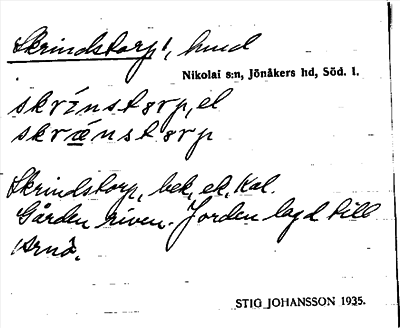 Skrindstorp, hmd
Nikolai s:n, Jönåkers hd, Söd. l.
skrinstørp, el
skrænstørp
Skrindstorp, bek, ek, Kal.
Gården riven. Jorden lagd till
Arnö.
STIG JOHANSSON 1935.